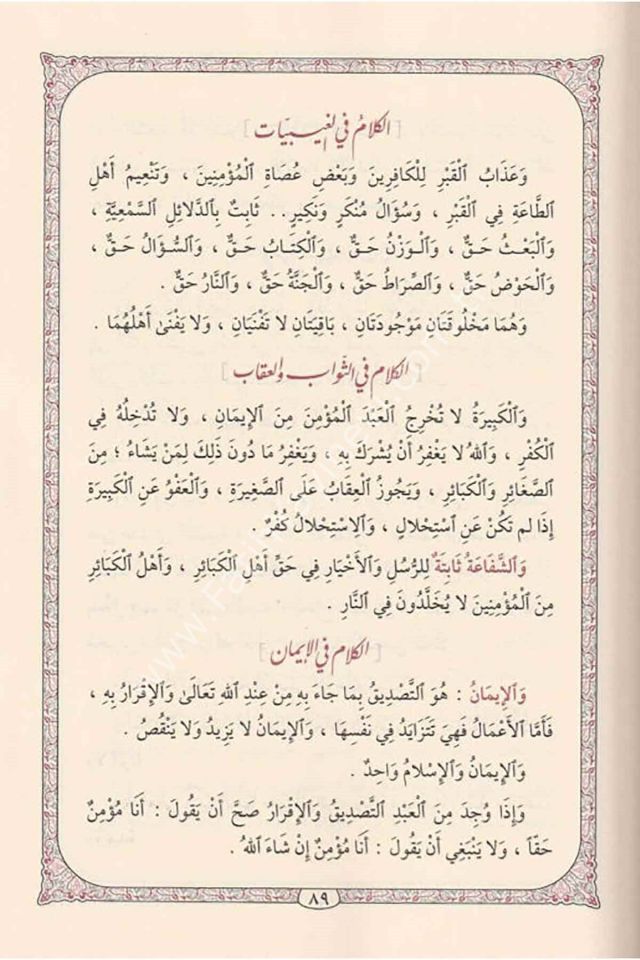 [ الكلام في الغيبيّات ]
وَعَذَابُ ٱلْقَبْرِ لِلْكَافِرِينَ وَبَعْضِ عُصَاةِ ٱلْمُؤْمِنِينَ ، وَتَنْعِيمُ أَهْلِ
ٱلطَّاعَةِ فِي ٱلْقَبْرِ ، وَسُؤَالُ مُنْكَرٍ وَنَكِيرٍ.. ثَابِتٌ بِٱلدَّلَائِلِ ٱلسَّمْعِيَّةِ ،
وَٱلْبَعْثُ حَقٌّ ، وَٱلْوَزْنُ حَقٌّ ، وَٱلْكِتَابُ حَقٌّ ، وَٱلسُّؤَالُ حَقٌّ ،
وَٱلْحَوْضُ حَقٌّ ، وَٱلصِّرَاطُ حَقٌّ ، وَٱلْجَنَّةُ حَقٌّ ، وَٱلنَّارُ حَقٌّ .
وَهُمَا مَخْلُوقَتَانِ مَوْجُودَتَانِ ، بَاقِيَتَانِ لَا تَفْنَيَانِ ، وَلَا يَفْنَىٰ أَهْلُهُمَا .
[ الكلام في الثّواب والعقاب ]
وَٱلْكَبِيرَةُ لَا تُخْرِجُ ٱلْعَبْدَ ٱلْمُؤْمِنَ مِنَ ٱلْإِيمَانِ ، وَلَا تُدْخِلُهُ فِي
ٱلْكُفْرِ ، وَٱللهُ لَا يَغْفِرُ أَنْ يُشْرَكَ بِهِ ، وَيَغْفِرُ مَا دُونَ ذَلِكَ لِمَنْ يَشَاءُ ؛ مِنَ
ٱلصَّغَائِرِ وَٱلْكَبَائِرِ ، وَيَجُوزُ ٱلْعِقَابُ عَلَى ٱلصَّغِيرَةِ ، وَٱلْعَفْوُ عَنِ ٱلْكَبِيرَةِ
إِذَا لم تَكُنْ عَنِ ٱسْتِحْلَالٍ ، وَٱلِاسْتِحْلَالُ كُفْرٌ .
وَٱلشَّفَاعَةُ ثَابِتَةٌ لِلرُّسُلِ وَٱلْأَخْيَارِ فِي حَقِّ أَهْلِ ٱلْكَبَائِرِ ، وَأَهْلُ ٱلْكَبَائِرِ
مِنَ ٱلْمُؤْمِنِينَ لَا يُخَلَّدُونَ فِي ٱلنَّارِ .
[ الكلام في الإيمان ]
وَٱلْإِيمَانُ : هُوَ ٱلتَّصْدِيقُ بِمَا جَاءَ بِهِ مِنْ عِنْدِ ٱللهِ تَعَالَىٰ وَٱلْإِقْرَارُ بِهِ ،
فَأَمَّا ٱلْأَعْمَالُ فَهِيَ تَتَزَايَدُ فِي نَفْسِهَا ، وَٱلْإِيمَانُ لَا يَزِيدُ وَلَا يَنْقُصُ .
وَٱلْإِيمَانُ وَٱلْإِسْلَامُ وَاحِدٌ .
وَإِذَا وُجِدَ مِنَ ٱلْعَبْدِ ٱلتَّصْدِيقُ وَٱلْإِقْرَارُ صَحَّ أَنْ يَقُولَ : أَنَا مُؤْمِنٌ
حَقّاً ، وَلَا يَنْبَغِي أَنْ يَقُولَ : أَنَا مُؤْمِنٌ إِنْ شَاءَ ٱللهُ .
٨٩